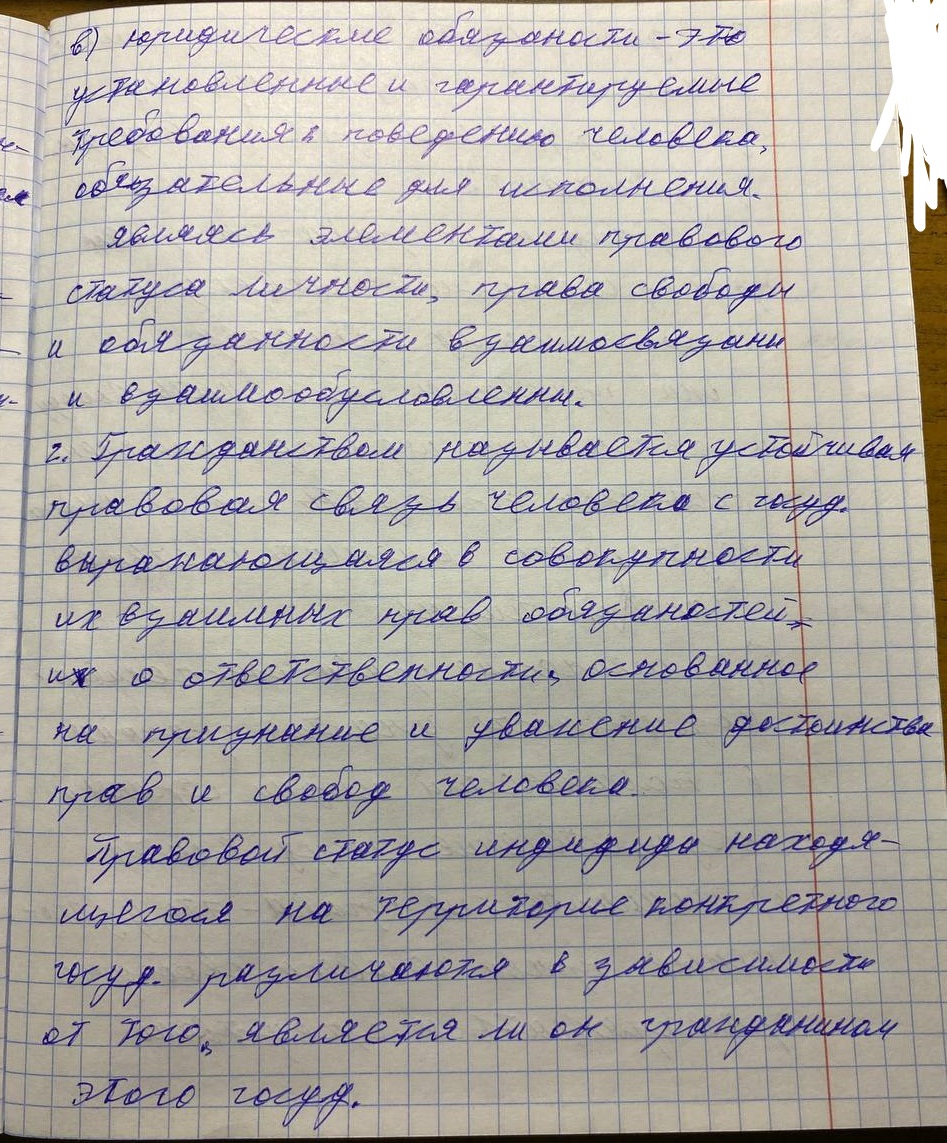 в) юридические обязаности - это
установленные и гарантируемые
требования к поведению человека,
обязательные для исполнения.
являясь элементами правового
статуса личности, права свободы
и обязанности взаимосвязани
и взаимообусловленны.
г. Гражданством называется устойчивая
правовая связь человека с госуд.
выражающаяся в совокупности
их взаимных прав обязаностей
и о ответственности, основанное
на признание и уважение достоинства
прав и свобод человека.
Правовой статус индидида находя-
щегося на территорие конкретного
госуд. различаются в зависимости
от того, является ли он гражданином
этого госуд.